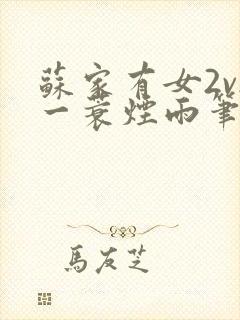 蘇家有女2v
一蓑煙雨筆
馬友芝